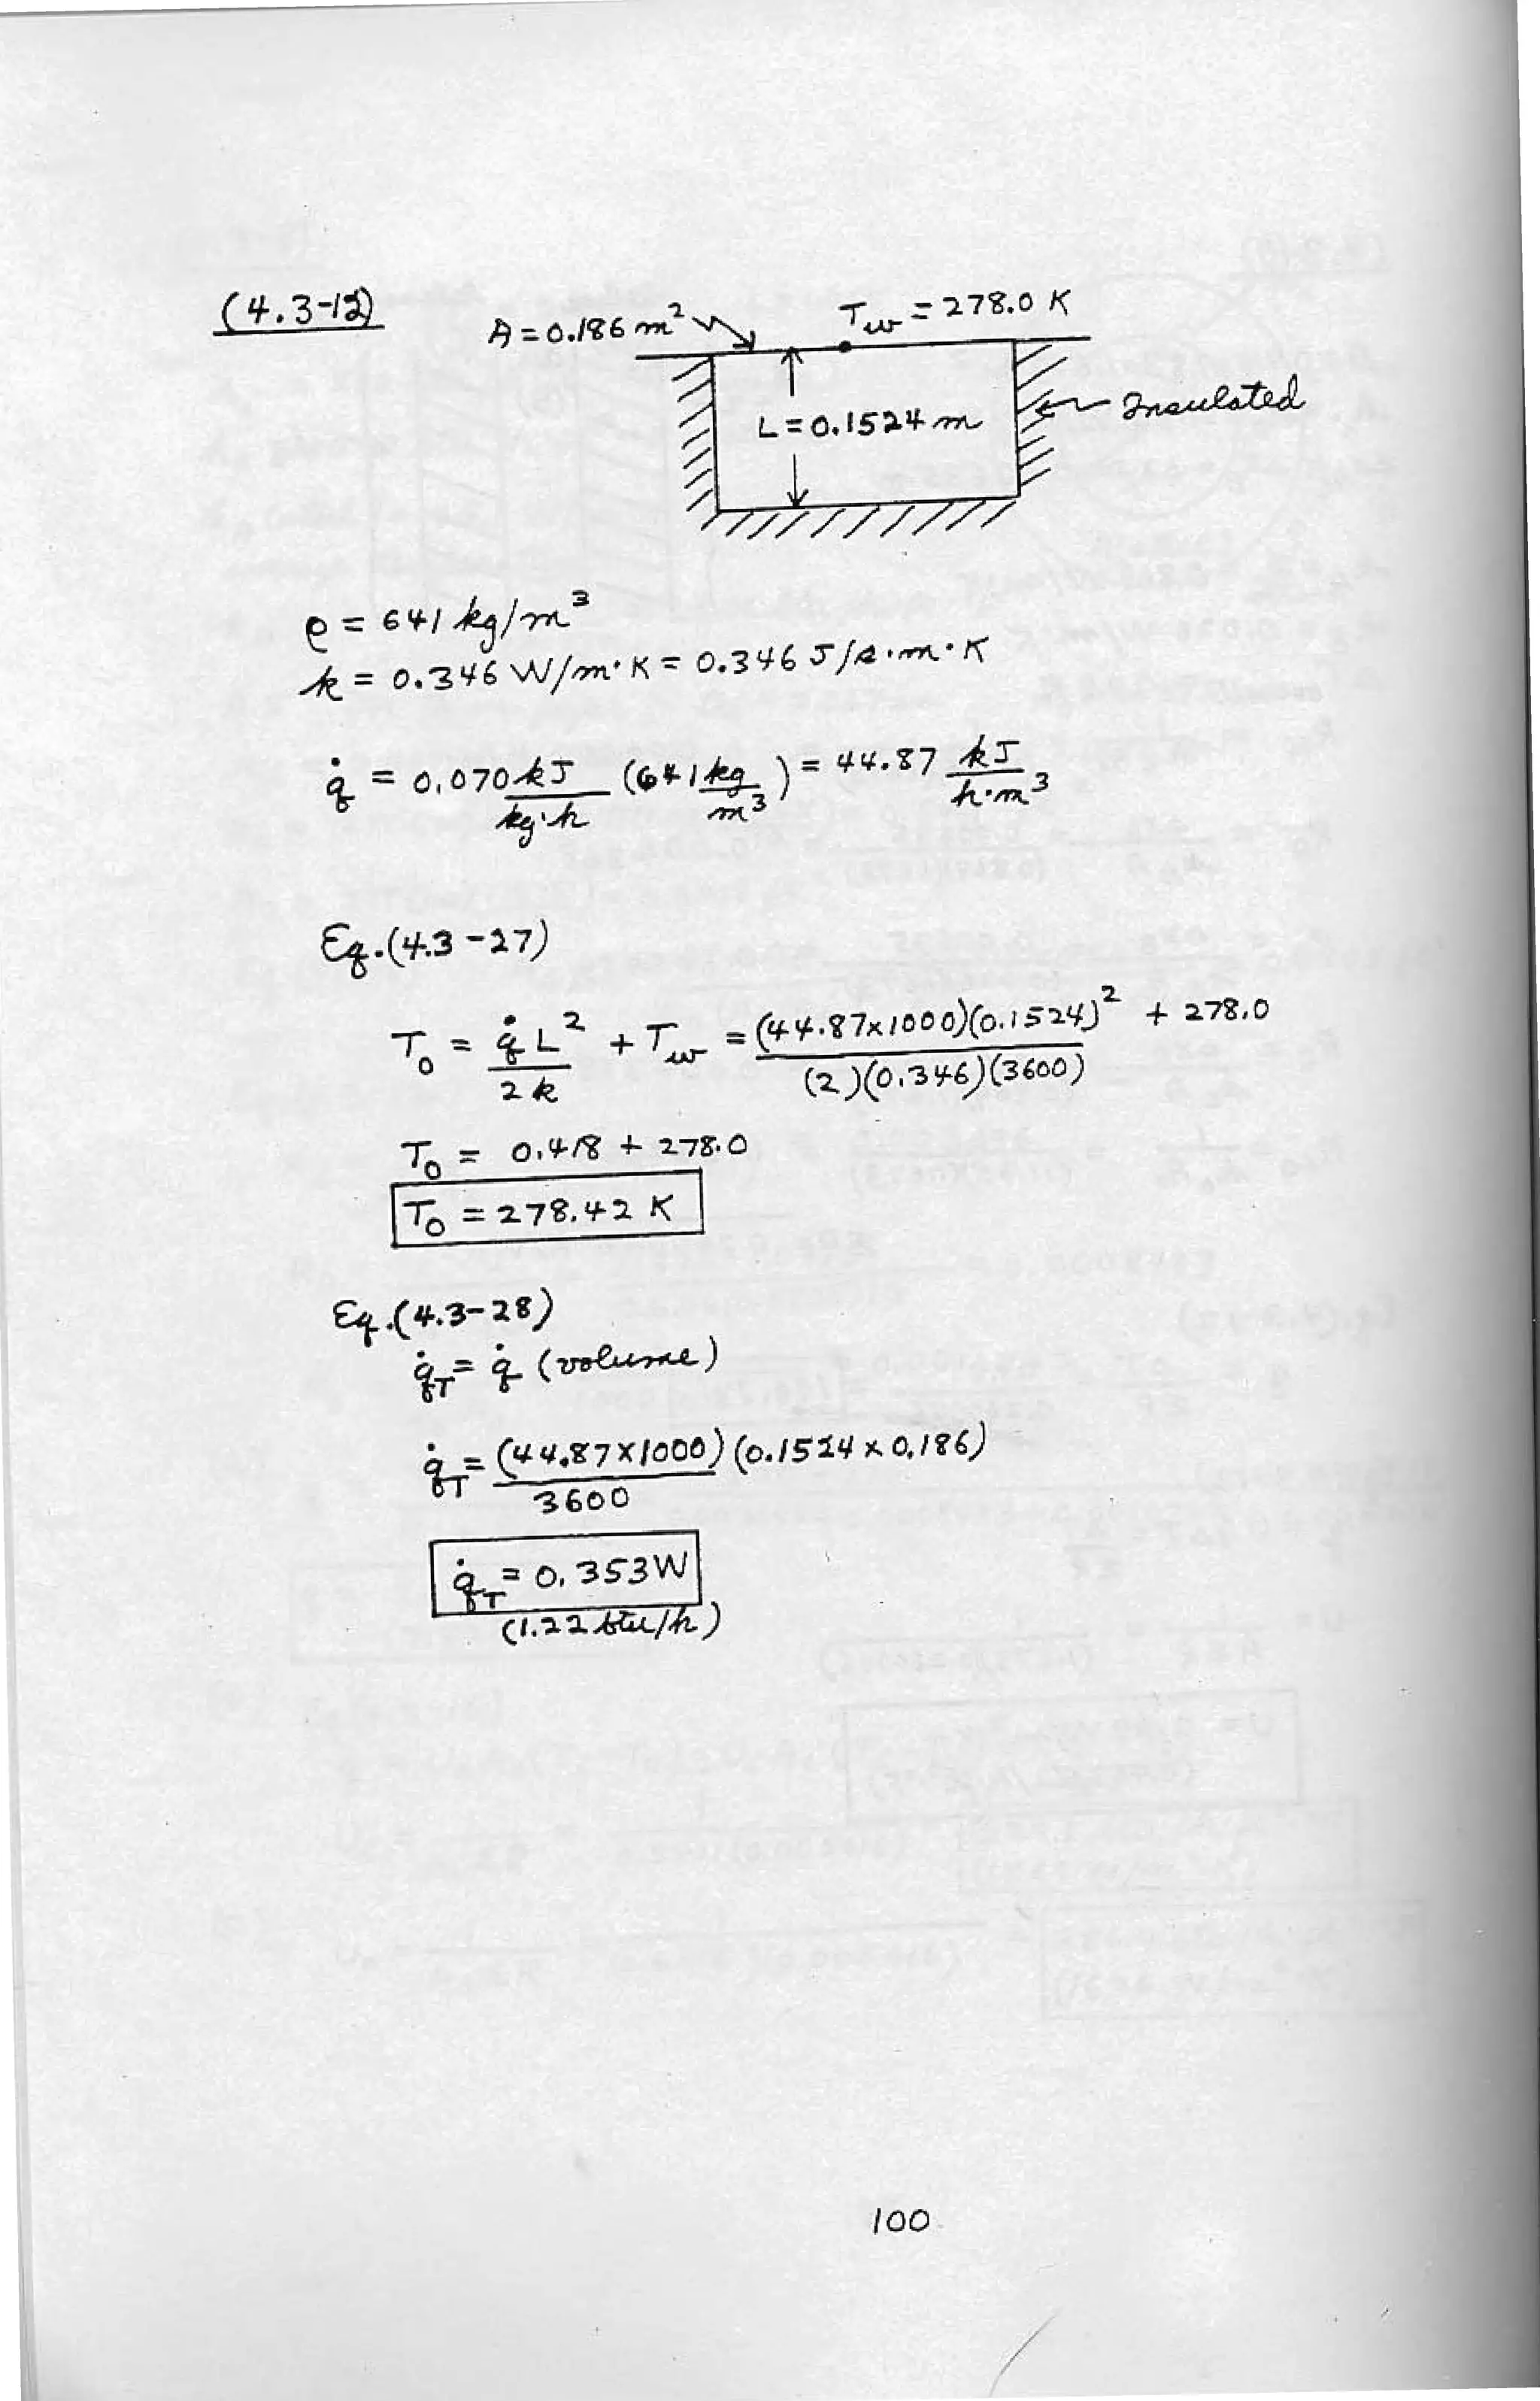 (4.3-12)
A = 0.186 m² T_w = 278.0 K
L = 0.1524 m
Insulated
ρ = 641 kg/m³
k = 0.346 W/m·K = 0.346 J/s·m·K
q̇ = 0.070 kJ/kg·h (641 kg/m³) = 44.87 kJ/h·m³
Eq.(4.3-27)
T₀ = q̇L²/2k + T_w = (44.87x1000)(0.1524)²/(2)(0.346)(3600) + 278.0
T₀ = 0.418 + 278.0
T₀ = 278.42 K
Eq.(4.3-28)
q̇_T = q̇ (volume)
q̇_T = (44.87x1000)/3600 (0.1524 x 0.186)
q̇_T = 0.353 W
(1.22 btu/h)
100